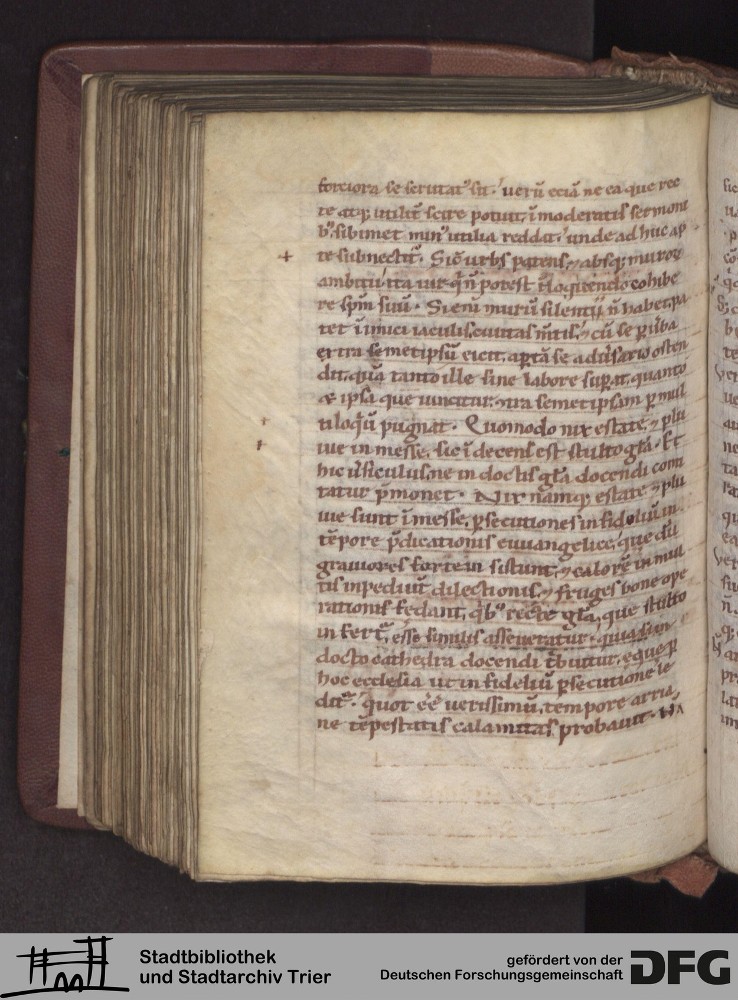 forciora se scrutat᷒ sit. uerū eciā ne ea que rec
te atq; utilit̄ scire potuit, īmoderatis sermoni
b᷒ sibimet min᷒ utilia reddat. unde ad huc ap
te subnectit᷒. Sic̄ urbs patens, ⁊ absq; muroꝝ
ambitu, ita uir q̄ n̄ potest ī loquendo cohibe
re spm̄ suū. Si enī murū silentii n̄ habet, pa
tet īimici iaculis, ciuitas m̄tis, ⁊ cū se ꝑ ūba
extra semetipsū eicit, aꝑtā se aduersario osten
dit. quā tanto ille sine labore suꝑat, quanto
⁊ ipsa que uincitur, ↄtra semetipsam ꝑ mul
tiloq̄ū pugnat. Quomodo nix estate, ⁊ plu
uie in messe, sic ī decens est stulto gl̄a. Et
hic uersiculus, ne in doctis gl̄a docendi comi
tatur p̄monet. Nix namq; estate, ⁊ plu
uie sunt ī messe, ꝑsecutiones in fidoliū in
tēpore p̄dicationis euuangelice, que dū
grauiores forte in sistunt, ⁊ calorē in mul
tis inpediūt dilectionis, ⁊ fruges bone ope
rationis fedant, q̄b᷒ recte gl̄a, que stulto
in fert᷒, esse similis asseueratur.
docto cathedra docendi t̄buitur, eque ꝑ
hoc ecclesia ut in fideliū ꝑsecutione le
dit᷒. quot eē uerissimū, tempore arria
ne tēpestatis calamitas probauit. Nā
Stadtbibliothek
und Stadtarchiv Trier
gefördert von der
Deutschen Forschungsgemeinschaft
DFG